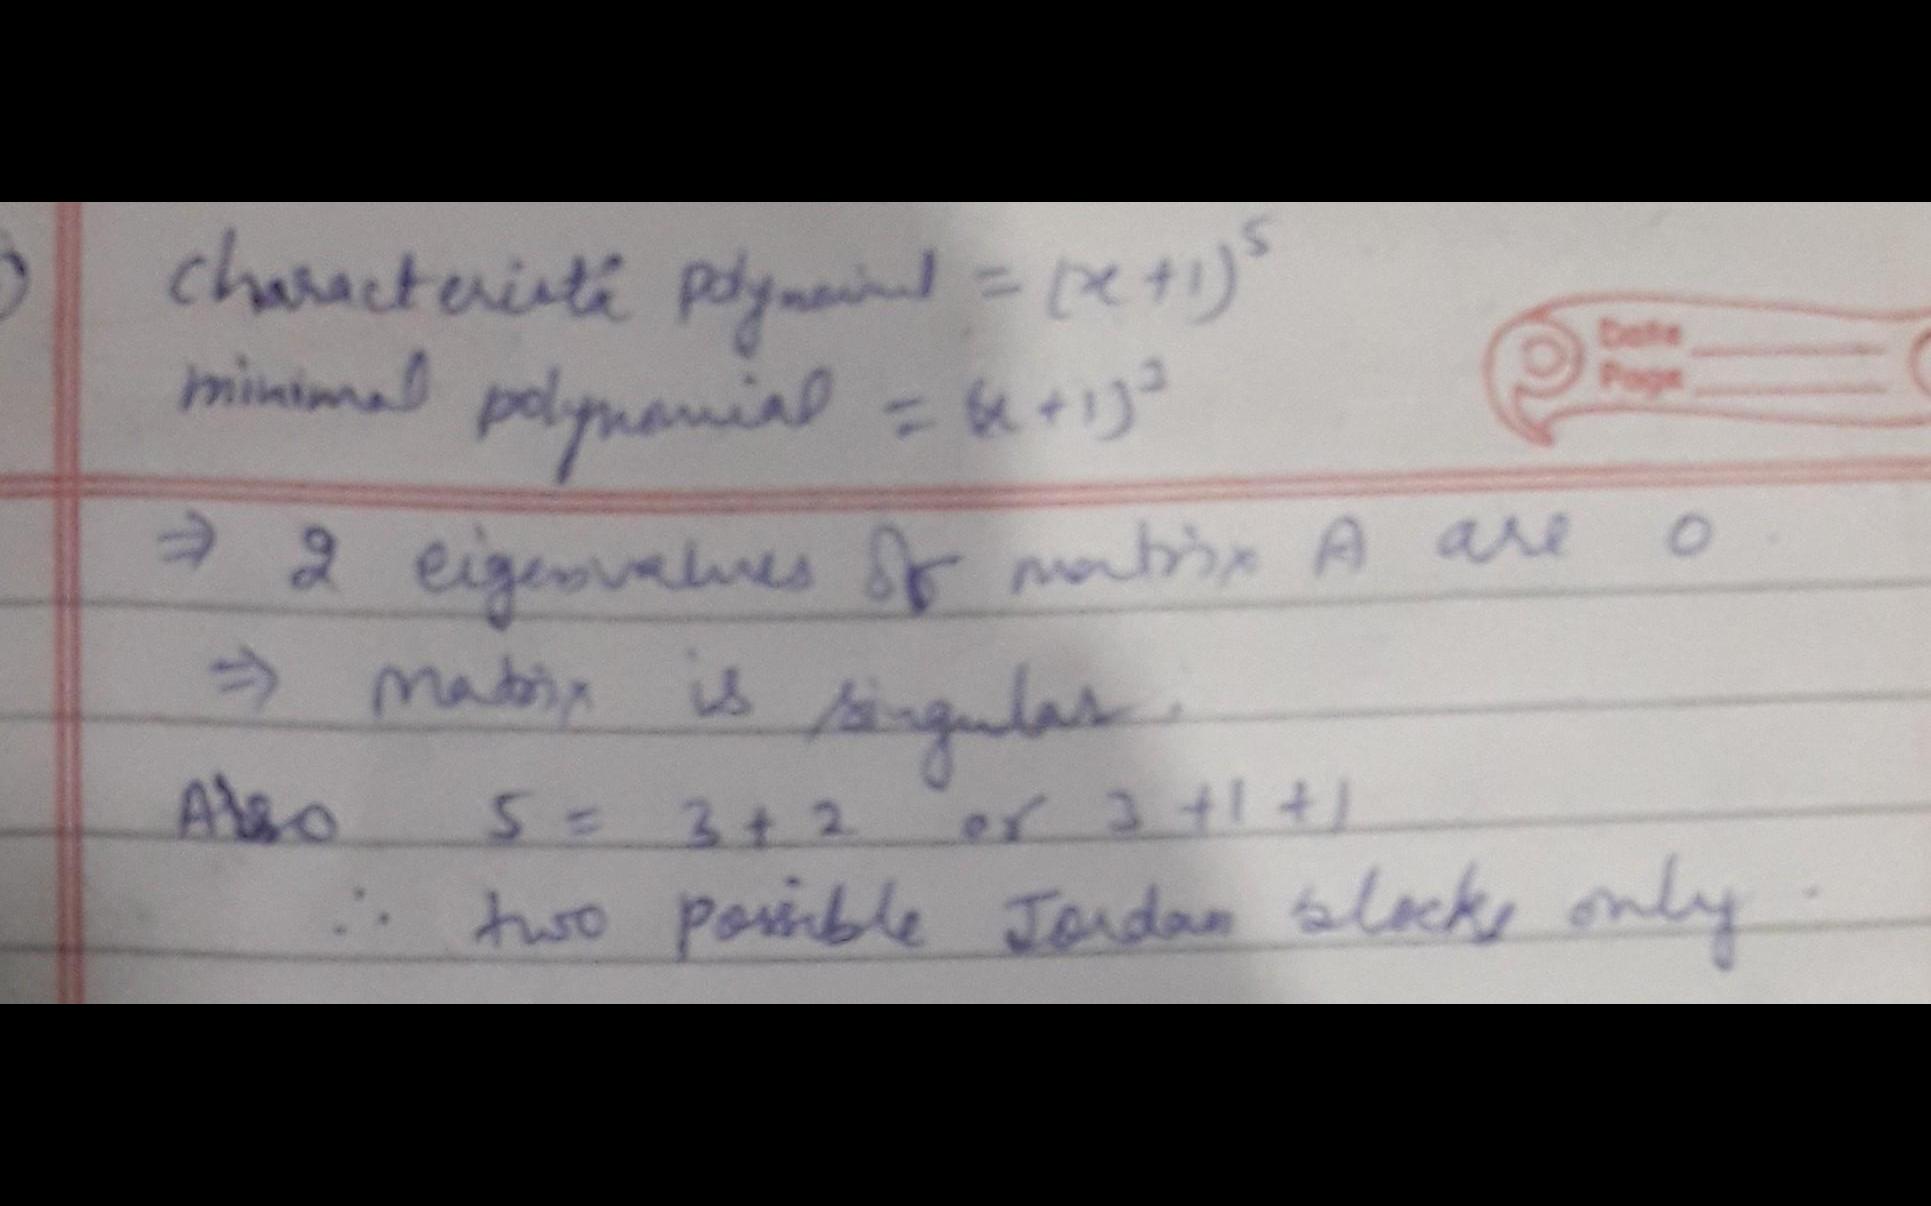 ) characteristic polynomial = (x+1)^5
minimal polynomial = (x+1)^3
Date
Page
⇒ 2 eigenvalues of matrix A are 0.
⇒ Matrix is singular.
Also 5 = 3+2 or 3+1+1
∴ two possible Jordan blocks only.